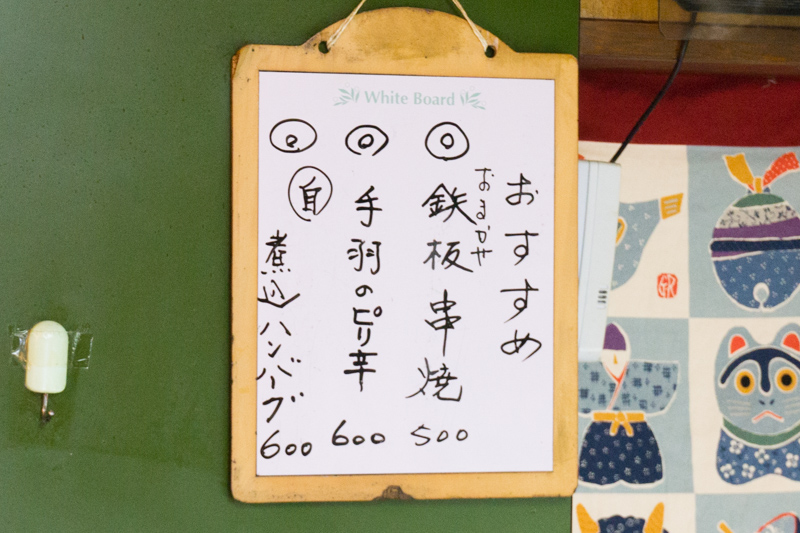 White Board
おすすめ
おまかせ
◎鉄板串焼 500
◎手羽のピリ辛 600
◎自煮込ハンバーグ 600